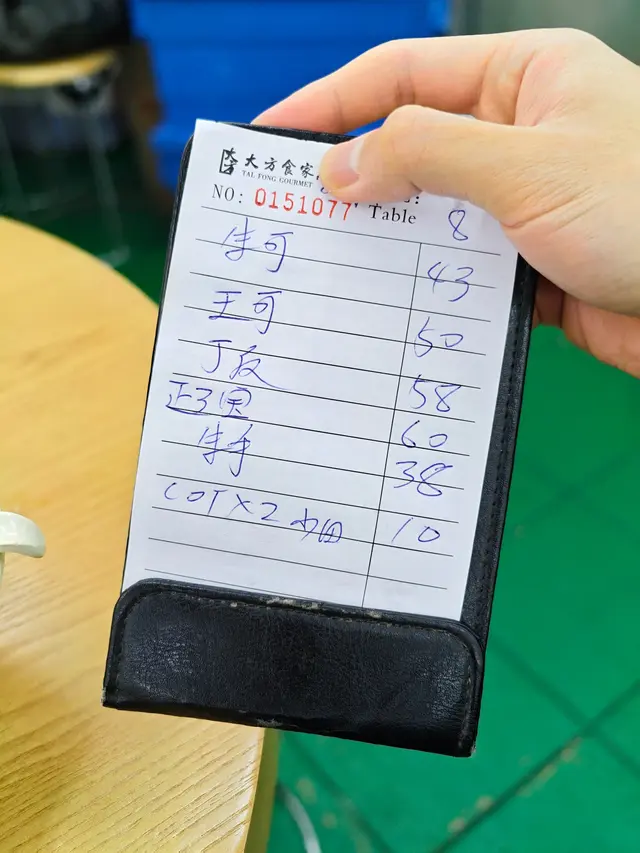 大方食家
TAI FONG GOURMET
NO: 0151077 Table 8
牛可 43
王可 50
丁反 58
正3 60
牛手 38
COTX2 10